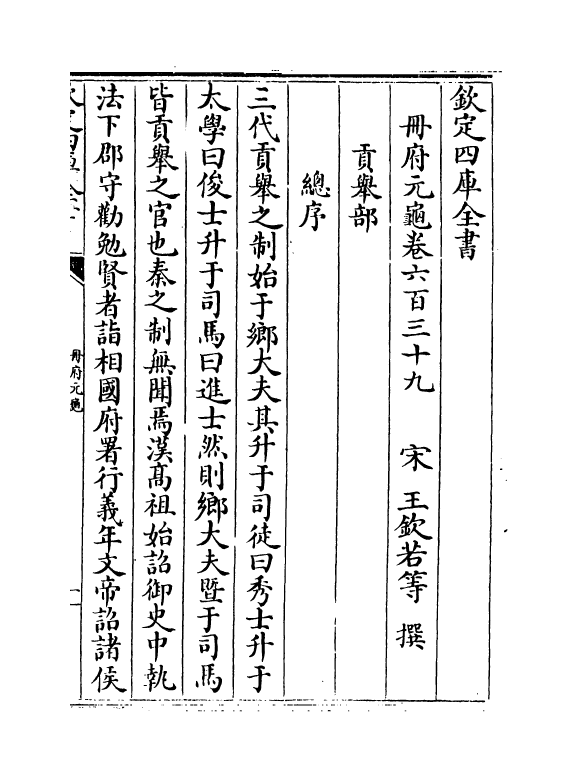 欽定四庫全書
冊府元龜卷六百三十九 宋 王欽若等 撰
貢舉部
總序
三代貢舉之制始于鄉大夫其升于司徒曰秀士升于
太學曰俊士升于司馬曰進士然則鄉大夫暨于司馬
皆貢舉之官也秦之制無聞焉漢高祖始詔御史中執
法下郡守勸勉賢者詣相國府署行義年文帝詔諸侯
欽定四庫全書
冊府元龜
一